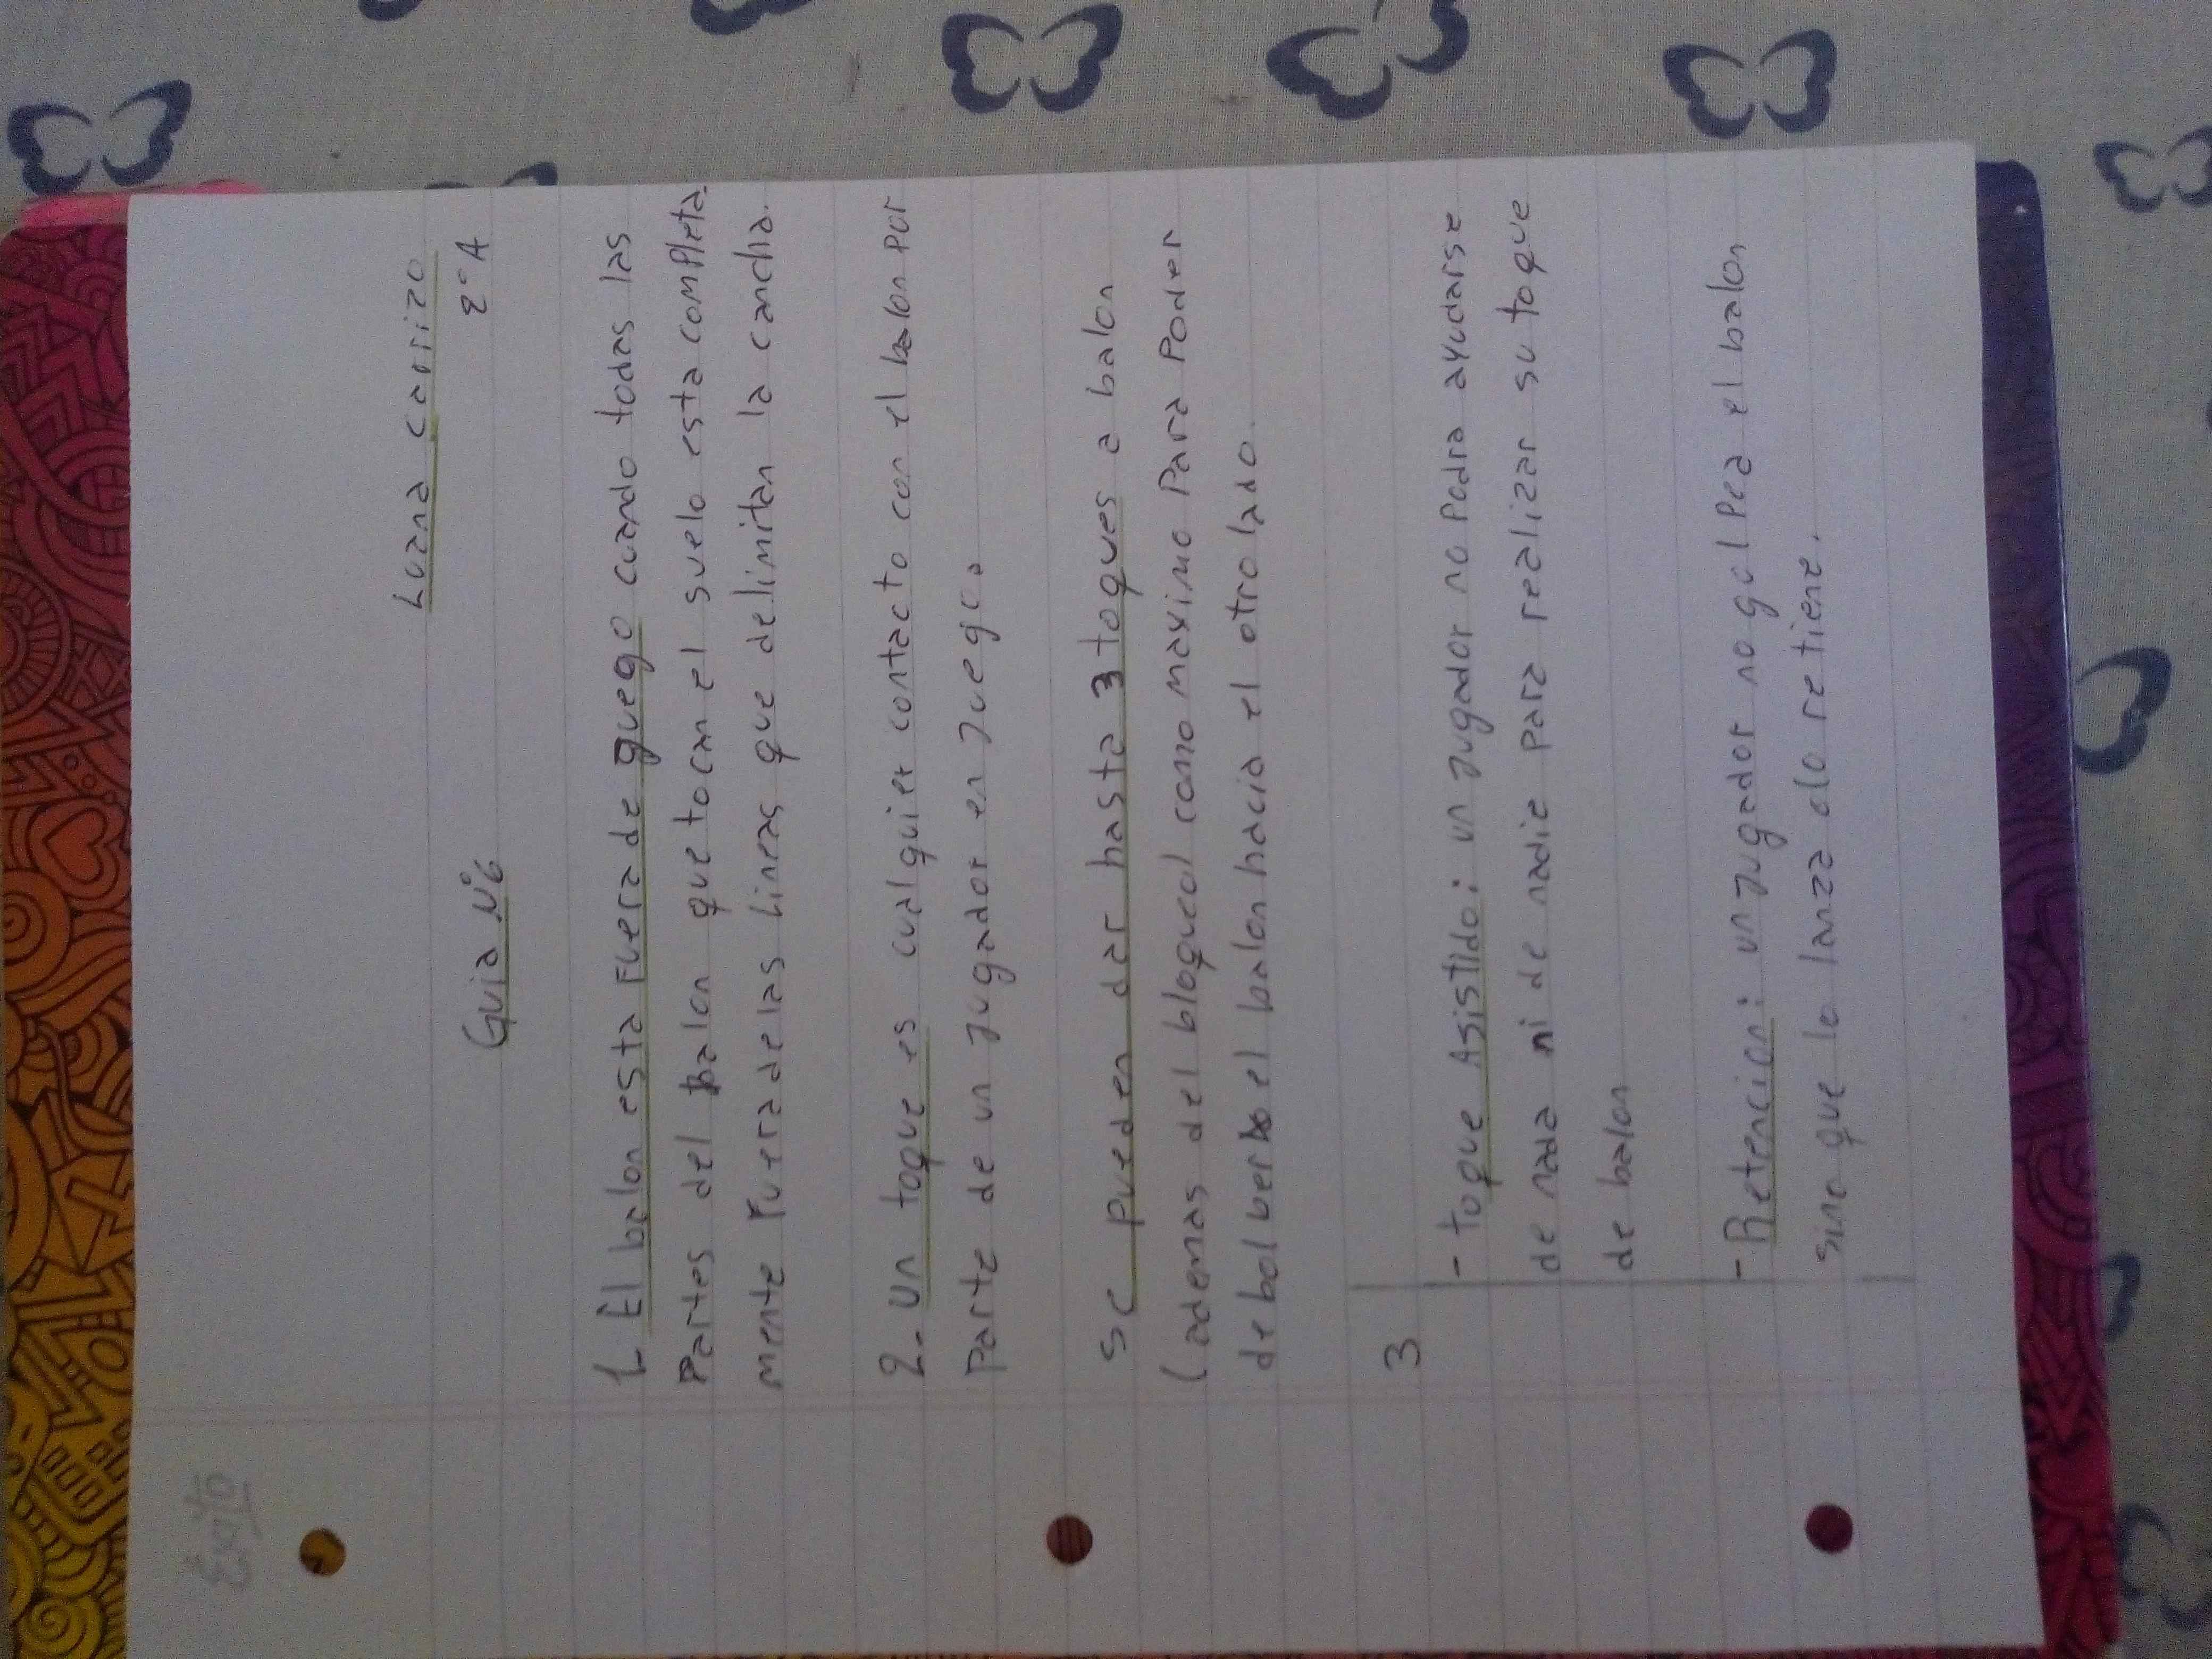 Luana carrizo
Guia N°6 2°A
1- El balon esta Fuera de guego cuando todas las
Partes del balon que tocan el suelo esta completa.
mente Fuera de las lineas que delimitan la cancha.
2- Un toque es cualquier contacto con el balon por
Parte de un Jugador en Juego.
Se pueden dar hasta 3 toques a balon
(ademas del bloqueo) como maximo Para Poder
debolver el balon hacia el otro lado.
3
- toque Asistido: un Jugador no Podra ayudarse
de nada ni de nadie para realizar su toque
de balon
- Retencion: un Jugador no golpea el balon
sino que lo lanza o lo retiene.